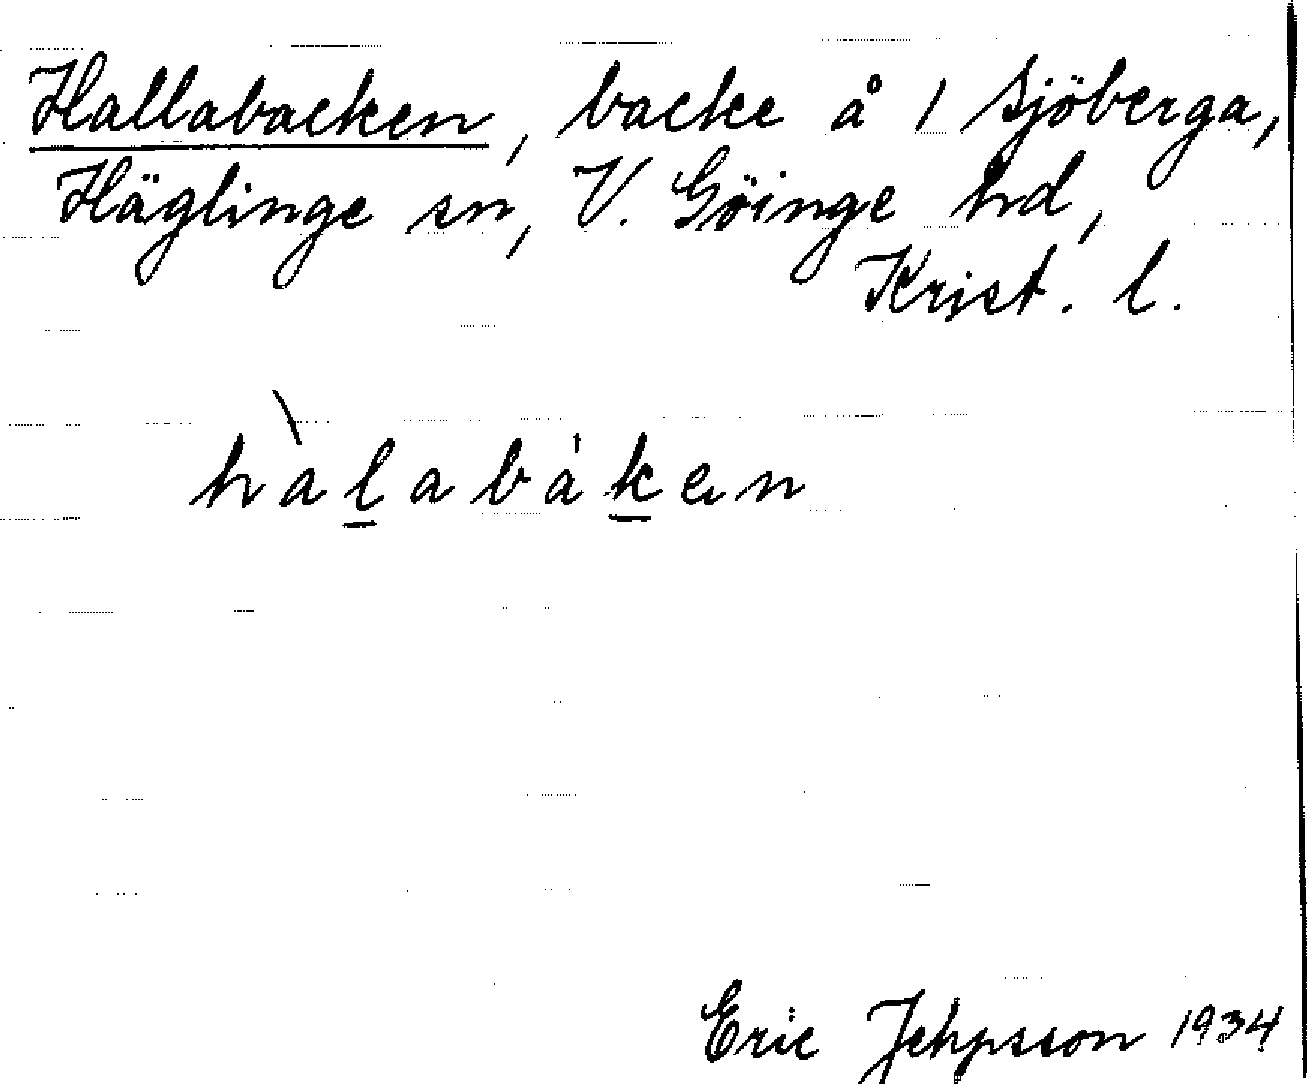 Hallabacken, backe å 1 Sjöberga,
Häglinge sn, V. Göinge hd,
Krist. l.
hàl̲abák̲en
Eric Jehpsson 1934